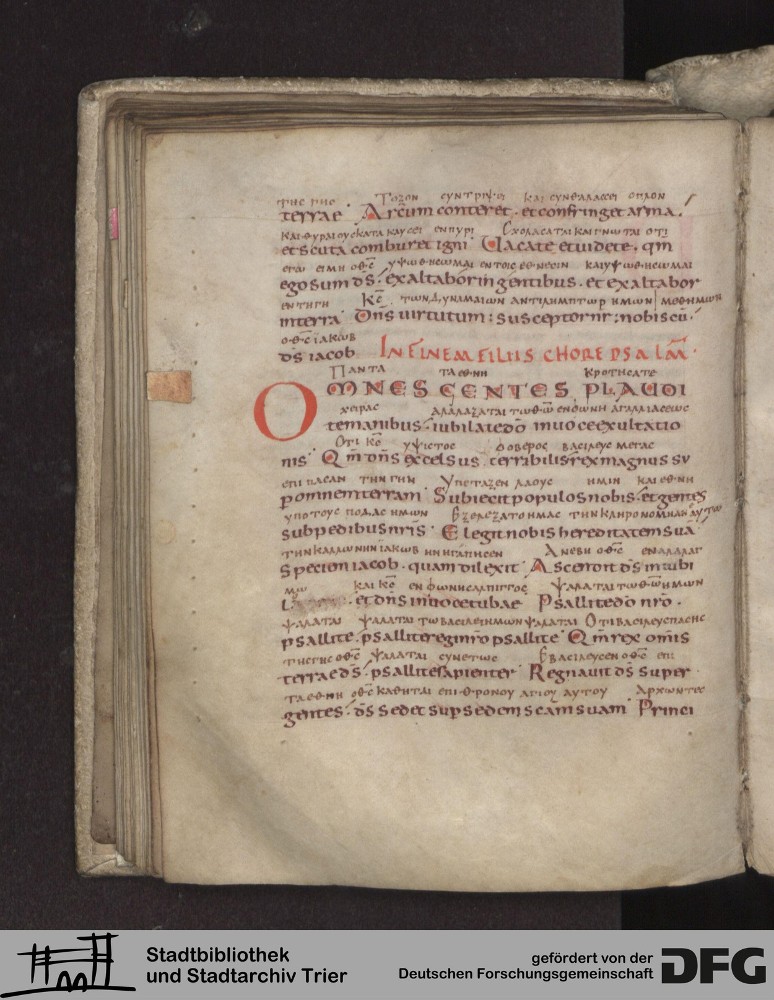 ΤΗС ΓΗС ΤΟΞΟΝ СΥΝΤΡΙΨΕΙ ΚΑΙ СΥΝΘΛΑСΕΙ ΟΠΛΟΝ
terrae · Arcum conteret · et confringet arma ·
ΚΑΙ ΘΥΡΑΙΟΥС ΚΑΤΑΚΑΥСΕΙ ΕΝ ΠΥΡΙ СΧΟΛΑСΑΤΑΙ ΚΑΙ ΓΝΩΤΑΙ ΟΤΙ
et scuta comburet igni · Uacate et uidete · qm̄
ΕΓΩ ΕΙΜΗ Ο ΘC̄ ΥΨΩΘΗСΩΜΑΙ ΕΝ ΤΟΙС ΕΘΝΕСΙΝ ΚΑΙ ΥΨΩΘΗСΩΜΑΙ
ego sum d̄s · exaltabor in gentibus · et exaltabor
ΕΝ ΤΗ ΓΗ ΚC̄ ΤΩΝ ΔΥΝΑΜΑΙΩΝ ΑΝΤΙΛΗΜΠΤΩΡ ΗΜΩΝ ΜΘ ΗΜΩΝ
in terra · Dn̄s uirtutum : susceptor nr̄ : nobiscū ·
Ο ΘC̄ ΙΑΚΩΒ
d̄s iacob IN FINEM FILIIS CHORE PSALM̄ ·
ΠΑΝΤΑ ΤΑ ΕΘΝΗ ΚΡΟΤΗСΑΤΕ
OMNES GENTES PLAUDI
ΧΕΙΡΑС ΑΛΑΛΑΖΑΤΑΙ ΤΩ ΘΩ̄ ΕΝ ΦΩΝΗ ΑΓΑΛΛΙΑСΕΩС
te manibus · iubilate dō in uoce exultatio
ΟΤΙ ΚC̄ ΥΨΙСΤΟС ΦΟΒΕΡΟС ΒΑСΙΛΕΥС ΜΕΓΑС
nis · Qm̄ dn̄s excelsus · terribilis · rex magnus su
ΕΠΙ ΠΑСΑΝ ΤΗΝ ΓΗΝ ΥΠΕΤΑΞΕΝ ΛΑΟΥС ΗΜΙΝ ΚΑΙ ΕΘΝΗ
p omnem terram · Subiecit populos nobis · et gentes
ΥΠΟ ΤΟΥС ΠΟΔΑС ΗΜΩΝ ΕΞΕΛΕΞΑΤΟ ΗΜΑС ΤΗΝ ΚΛΗΡΟΝΟΜΗΑΝ ΑΥΤΩ
sub pedibus nr̄is · Elegit nobis hereditatem suā
ΤΗΝ ΚΑΛΛΩΝΗΝ ΙΑΚΩΒ ΗΝ ΗΓΑΠΗСΕΝ ΑΝΕΒΗ Ο ΘC̄ ΕΝ ΑΛΑΛΑΓ
Speciem iacob · quam dilexit · Ascendit d̄s in iubi
ΜΩ ΚΑΙ ΚC̄ ΕΝ ΦΩΝΗ СΑΛΠΙΓΓΟС ΨΑΛΑΤΑΙ ΤΩ ΘΩ̄ ΗΜΩΝ
et dn̄s in uoce tubae Psallite dō nr̄o ·
ΨΑΛΑΤΑΙ ΨΑΛΑΤΑΙ ΤΩ ΒΑСΙΛΕΙ ΗΜΩΝ ΨΑΛΑΤΑΙ ΟΤΙ ΒΑСΙΛΕΥС ΠΑСΗС
psallite · psallite regi nr̄o psallite · Qm̄ rex omīs
ΤΗС ΓΗС Ο ΘC̄ ΨΑΛΑΤΑΙ СΥΝΕΤΩС ΕΒΑСΙΛΕΥСΕΝ Ο ΘC̄ ΕΠΙ
terrae d̄s · psallite sapienter · Regnauit d̄s super
ΤΑ ΕΘΝΗ Ο ΘC̄ ΚΑΘΗΤΑΙ ΕΠΙ ΘΡΟΝΟΥ ΑΓΙΟΥ ΑΥΤΟΥ ΑΡΧΩΝΤΕС
gentes · d̄s sedet sup sedem scam suam Princi
Stadtbibliothek
und Stadtarchiv Trier
gefördert von der
Deutschen Forschungsgemeinschaft DFG